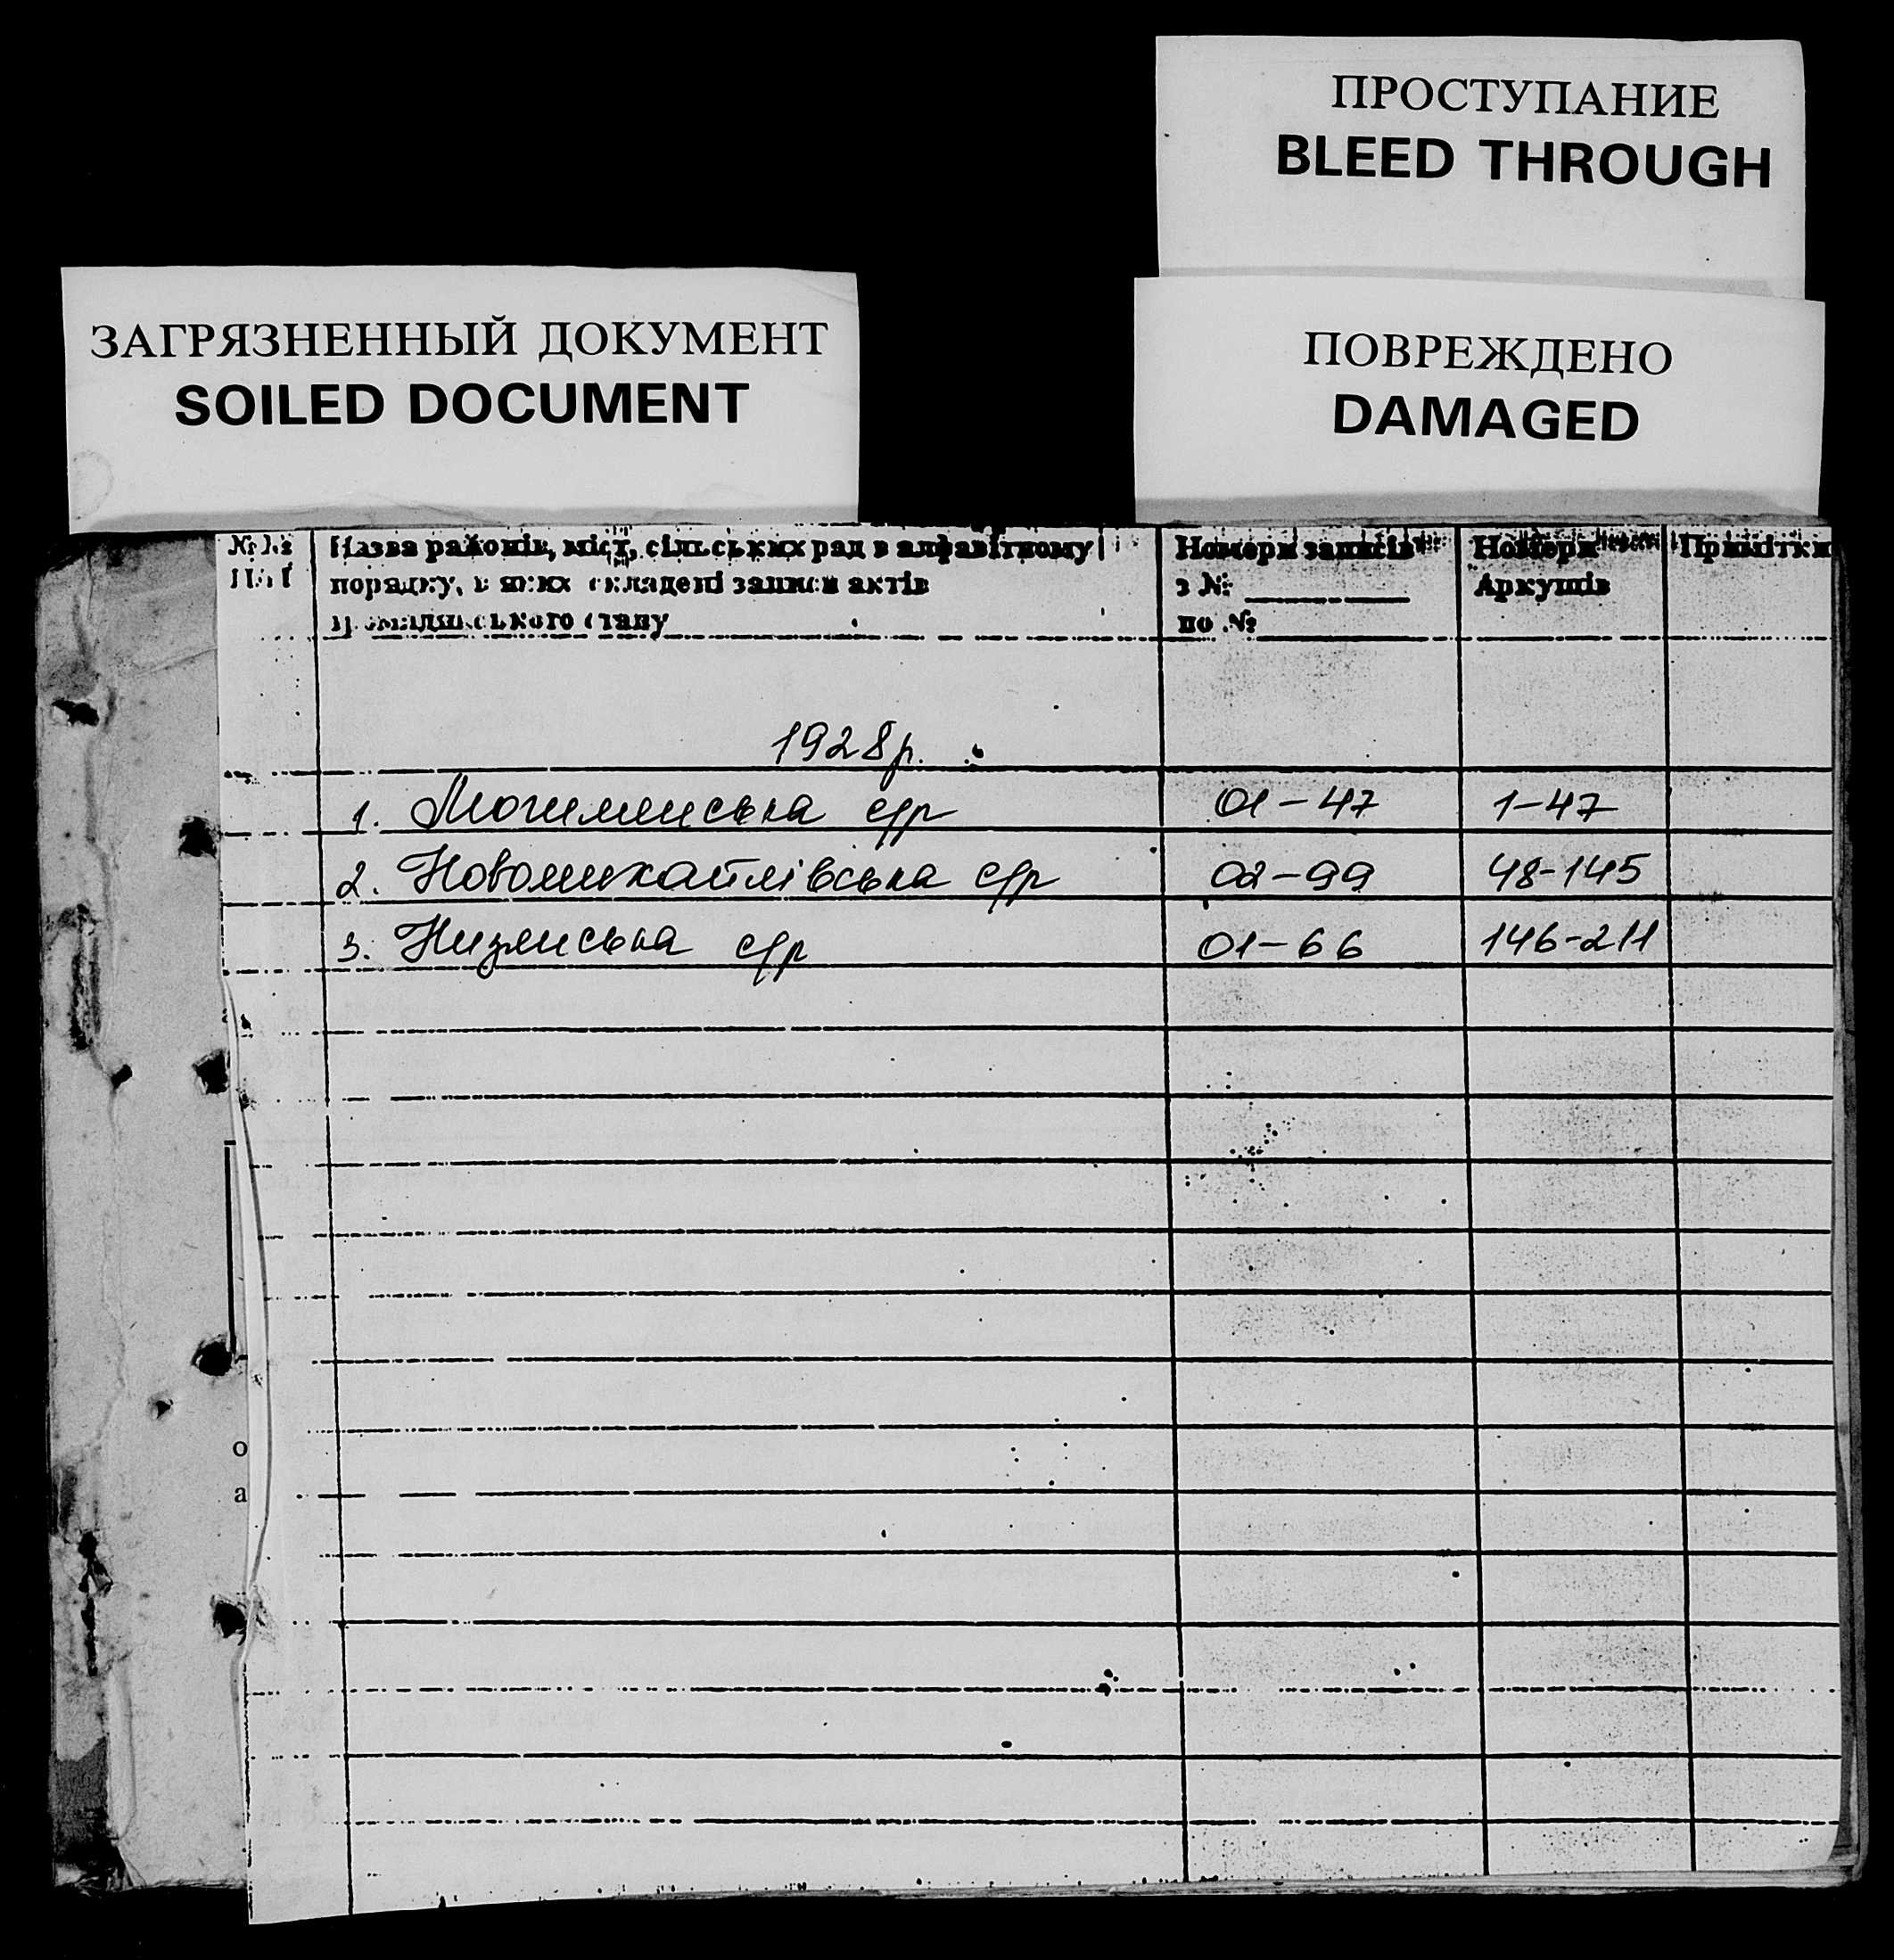 ПРОСТУПАНИЕ
BLEED THROUGH
ЗАГРЯЗНЕННЫЙ ДОКУМЕНТ
SOILED DOCUMENT
ПОВРЕЖДЕНО
DAMAGED
№№ Назва районів, міст, сільських рад в алфавітному Номери записів Номери Примітки
п/п порядку, в яких складені записи актів з № Аркушів
громадянського стану по №
1928р.
1. Могилянська с/р 01-47 1-47
2. Новомихайлівська с/р 02-99 48-145
3. Низянська с/р 01-66 146-211
о
а